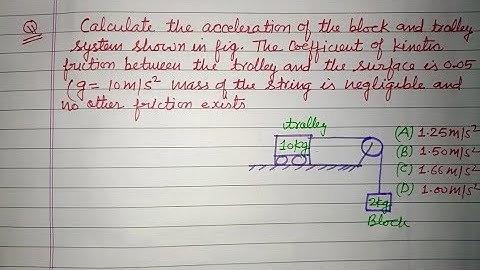 Q Calculate the acceleration of the block and trolley
system shown in fig. The coefficient of kinetic
friction between the trolley and the surface is 0.05
(g = 10m/s² mass of the string is negligible and
no other friction exists
trolley
10kg
2kg
Block
(A) 1.25m/s²
(B) 1.50m/s²
(C) 1.66m/s²
(D) 1.00m/s²